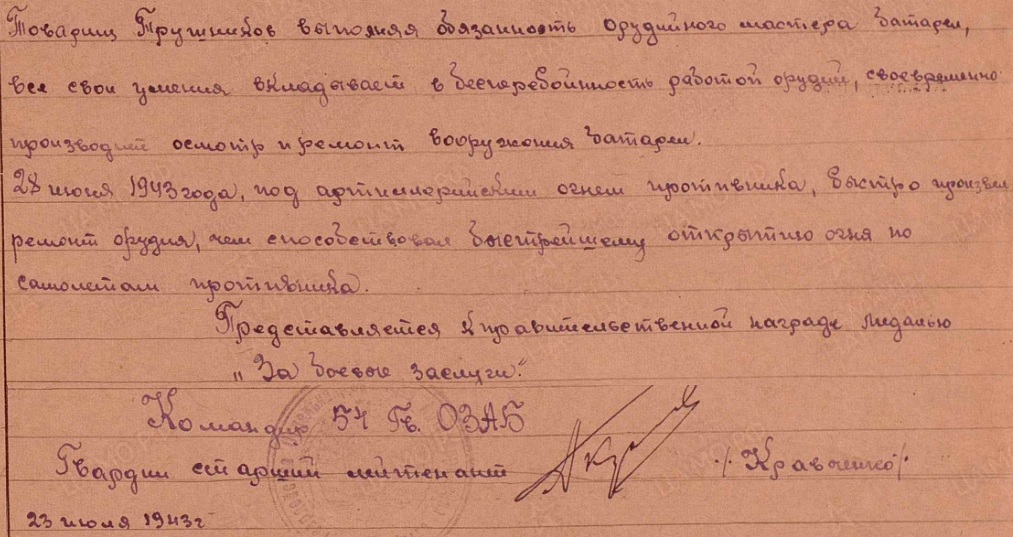 Товарищ Прушников выполняя обязанность орудийного мастера батареи,
все свои умения вкладывает в бесперебойность работой орудий, своевременно
производит осмотр и ремонт вооружения батареи.
28 июня 1943 года, под артиллерийским огнем противника, быстро произвел
ремонт орудия, чем способствовал быстрейшему открытию огня по
самолетам противника.
Представляется к правительственной награде медалью
„За боевые заслуги."
Командир 54 Гв. ОЗАБ
Гвардии старший лейтенант /Кравченко/
23 июля 1943 г